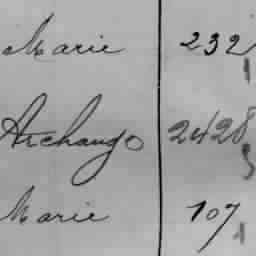 Marie 232
Archange 2428
Marie 107